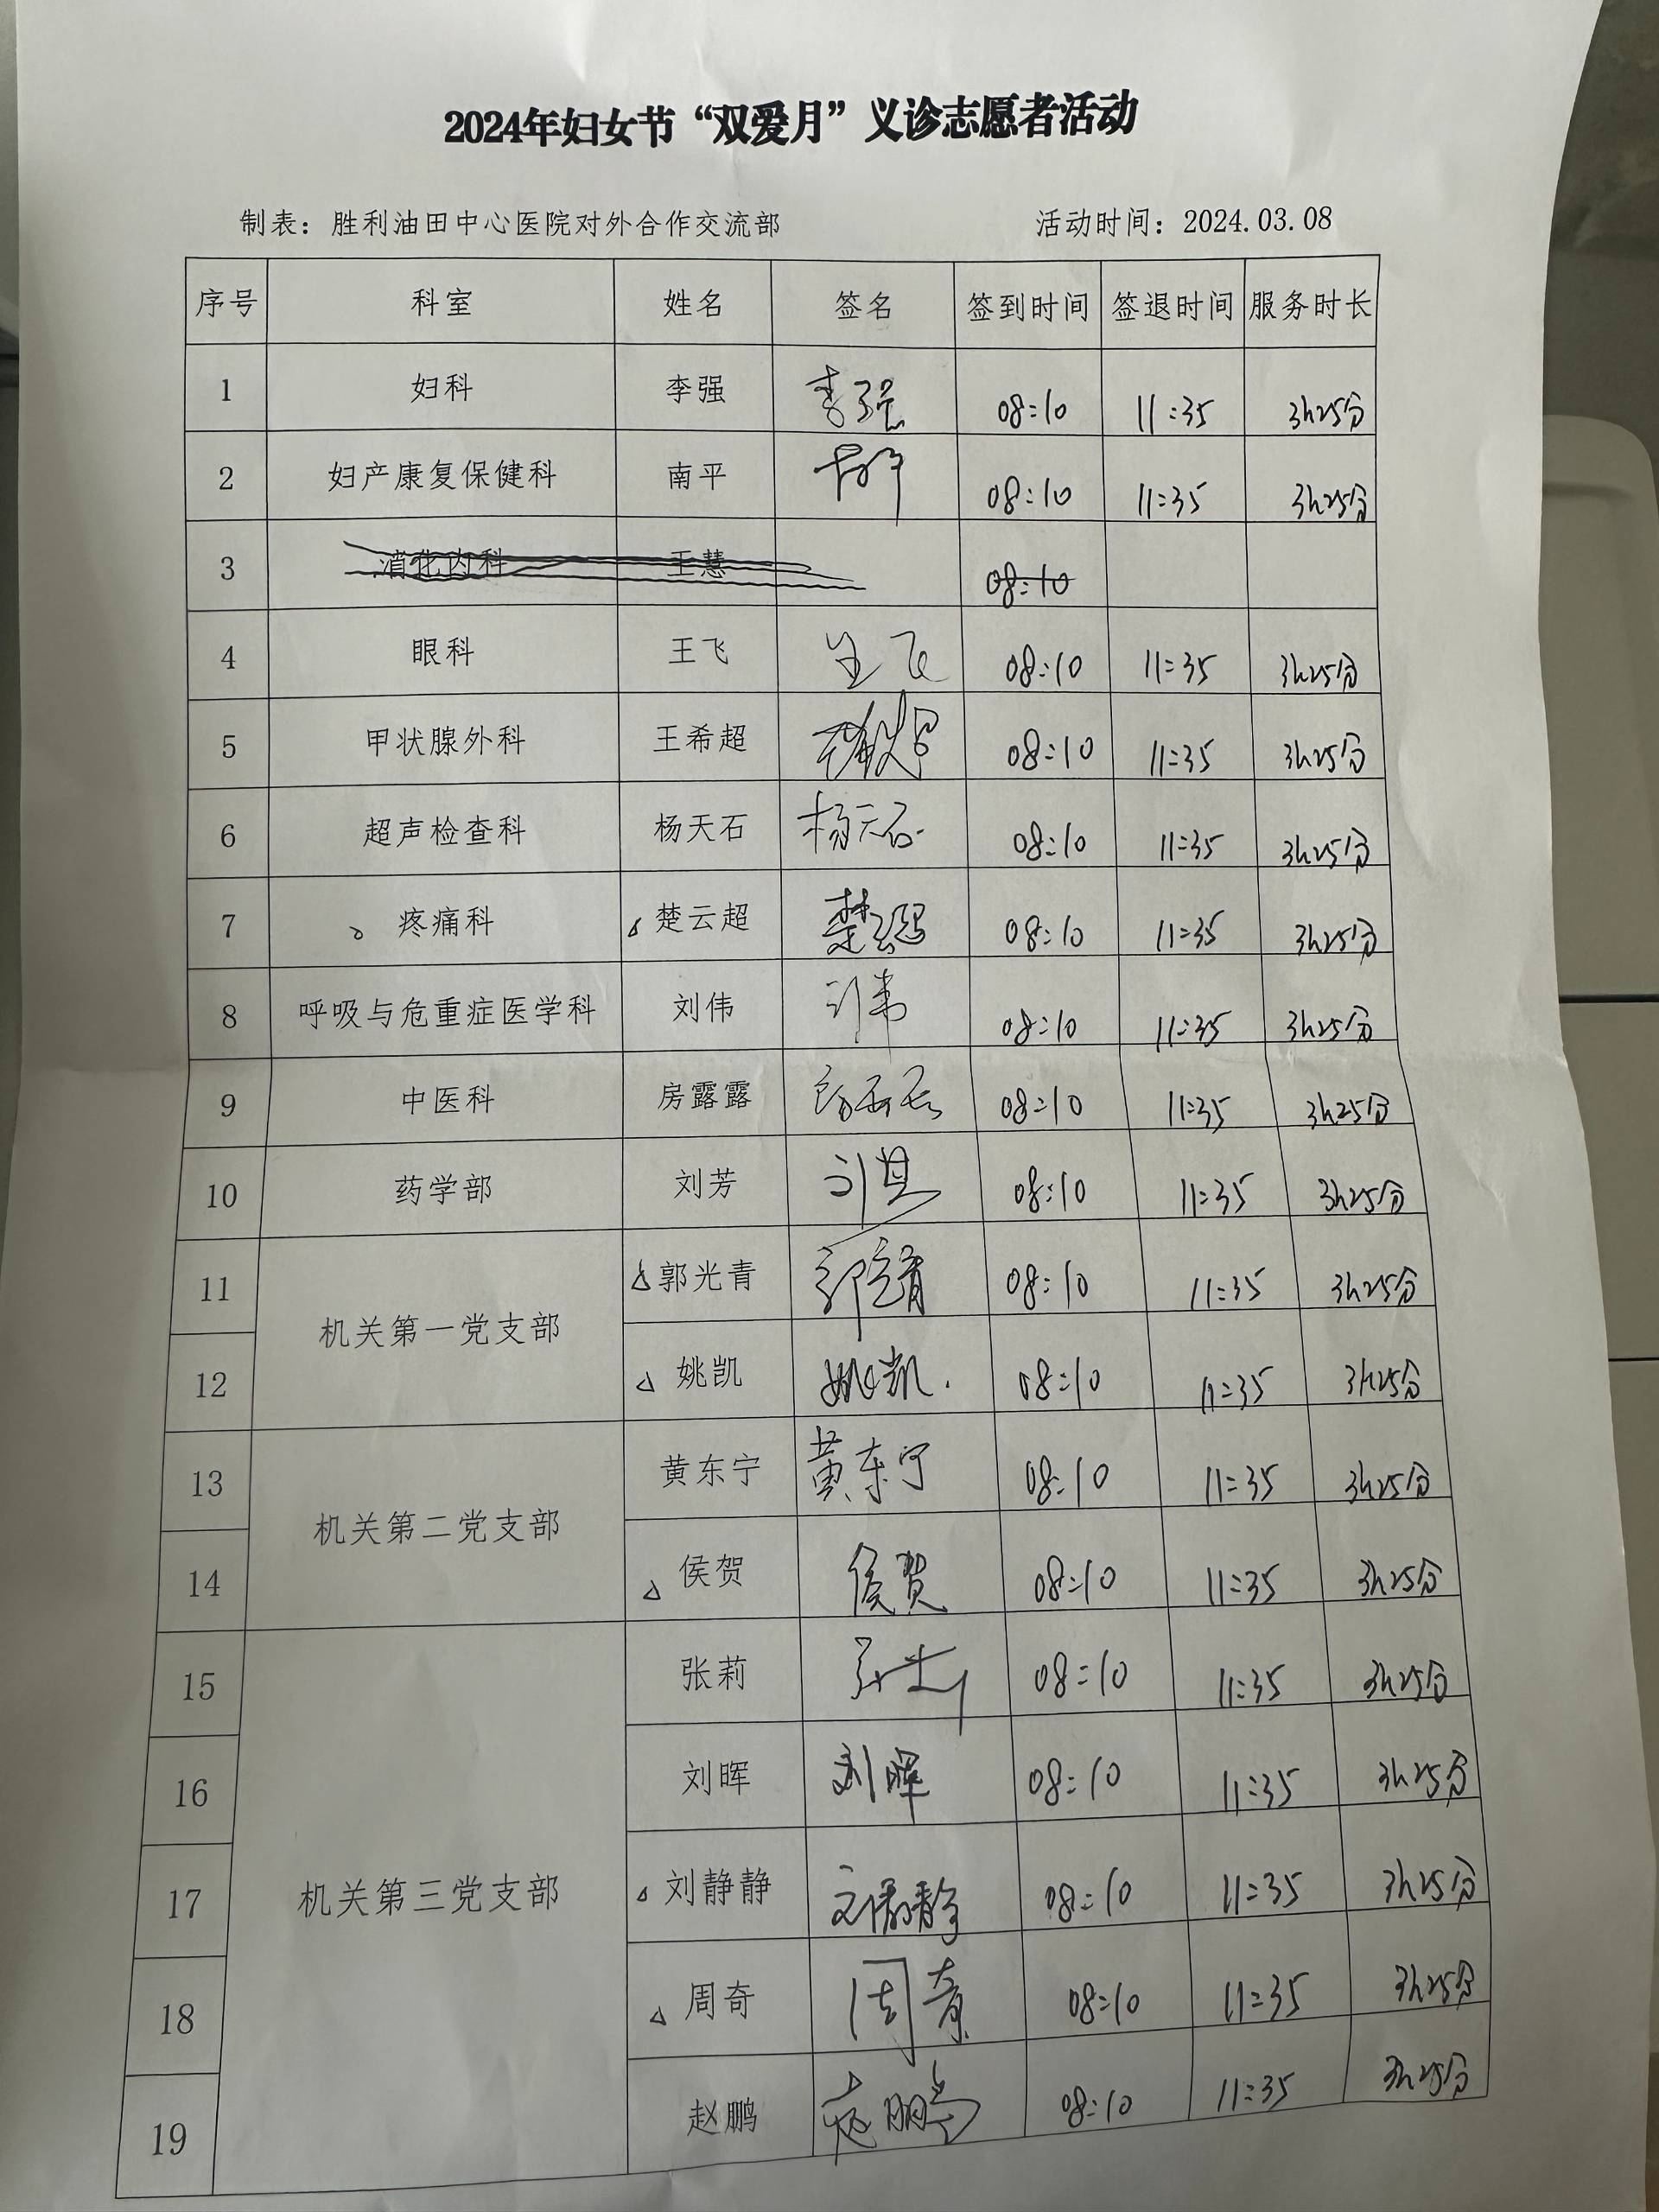 2024年妇女节“双爱月”义诊志愿者活动
制表：胜利油田中心医院对外合作交流部 活动时间：2024.03.08
序号 科室 姓名 签名 签到时间 签退时间 服务时长
1 妇科 李强 李强 08:10 11:35 3h25分
2 妇产康复保健科 南平 南平 08:10 11:35 3h25分
3 消化内科 王慧 08:10
4 眼科 王飞 王飞 08:10 11:35 3h25分
5 甲状腺外科 王希超 王希超 08:10 11:35 3h25分
6 超声检查科 杨天石 杨天石 08:10 11:35 3h25分
7 疼痛科 楚云超 楚云超 08:10 11:35 3h25分
8 呼吸与危重症医学科 刘伟 刘伟 08:10 11:35 3h25分
9 中医科 房露露 房露露 08:10 11:35 3h25分
10 药学部 刘芳 08:10 11:35 3h25分
11 机关第一党支部 郭光青 郭光青 08:10 11:35 3h25分
12 姚凯 姚凯 08:10 11:35 3h25分
13 机关第二党支部 黄东宁 黄东宁 08:10 11:35 3h25分
14 侯贺 侯贺 08:10 11:35 3h25分
15 张莉 张莉 08:10 11:35 3h25分
16 刘晖 刘晖 08:10 11:35 3h25分
17 机关第三党支部 刘静静 刘静静 08:10 11:35 3h25分
18 周奇 周奇 08:10 11:35 3h25分
19 赵鹏 赵鹏 08:10 11:35 3h25分